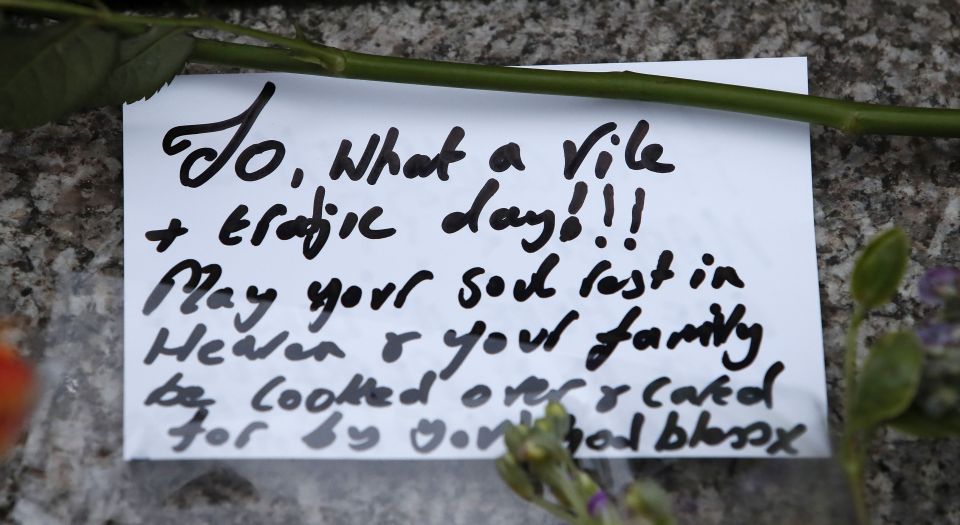 Jo, What a Vile
+ trafic day!!!
May your soul rest in
Heaven & your family
be looked over & cared
for by you God bless x